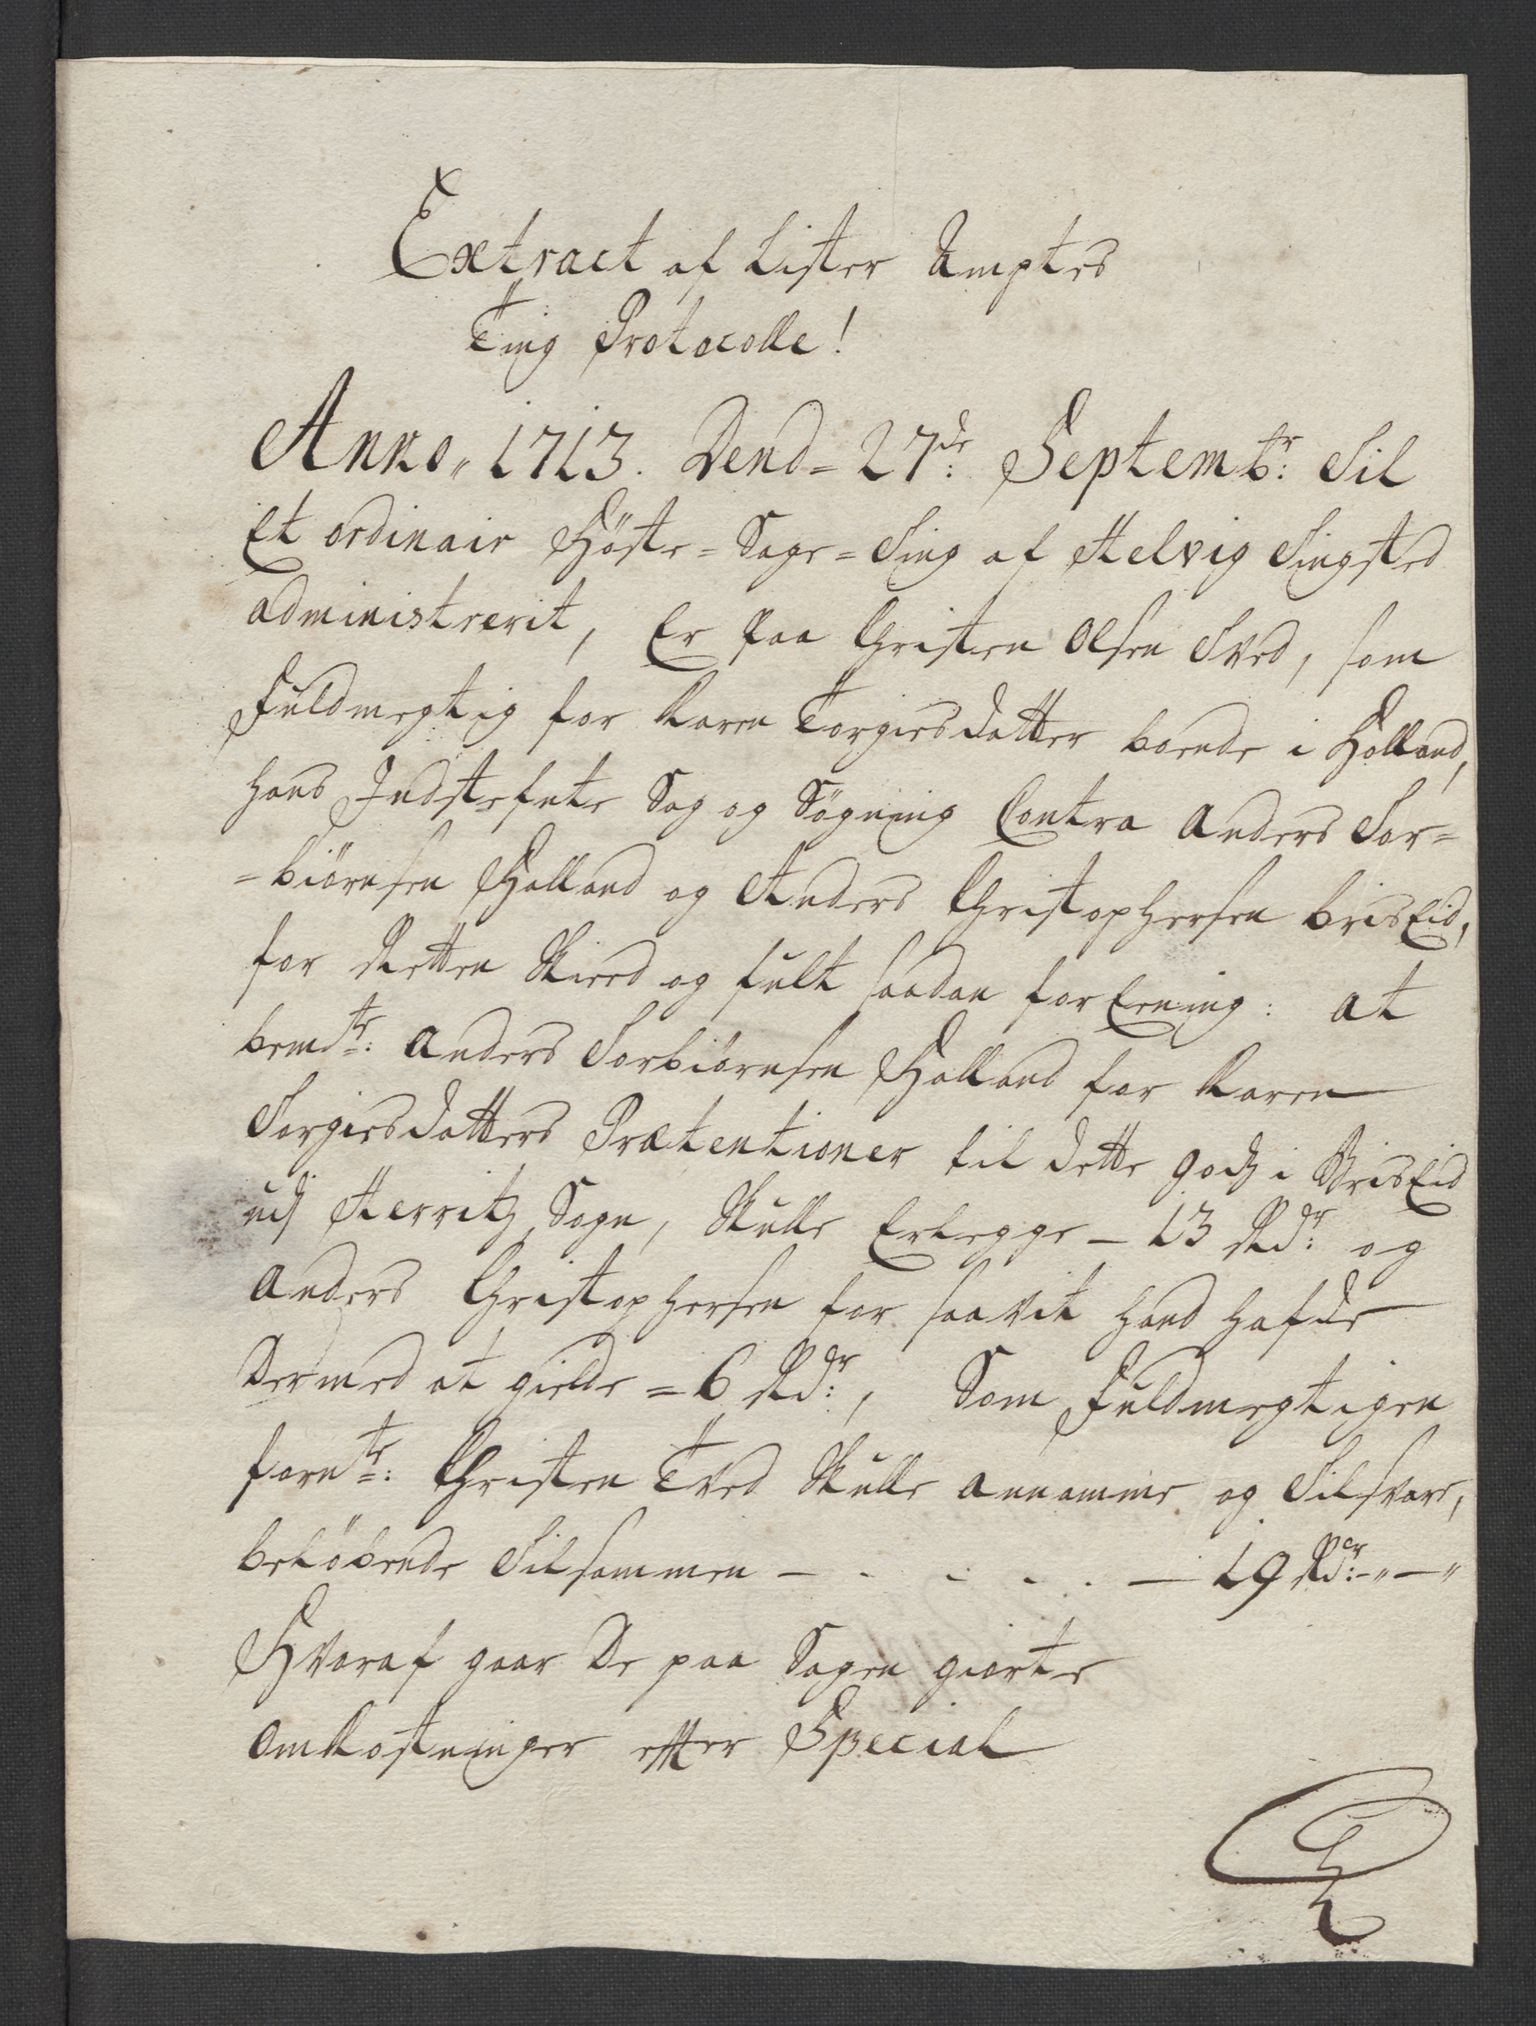 Extract af Lister Amptes
Ting Protocolle!
Anno„ 1713. Dend= 27de: Septembr: Til
Et ordinair Höste=Sage=Ting af Helvig Tingsted
administrerit, Er paa Christen Olsen Tved, som
Fuldmegtig for Karen Torgiersdatter boende i Holland,
hans Indstefnte Sag og Sögning Contra Anders Tor=
=biörnsen Holland og Anders Christophersen brisEid,
for Retten Skeed og fult saadan forEening: at
bemte: Anders Torbiörnsen Holland for Karen
Torgiersdatters Prætentioner til dette godz i BrisEid
udj Herritz Sogn, Skulle Erlegge – 13 Rdr: og
Anders Christophersen for saavit hand hafde
Dermed at gielde = 6 Rdr:, Som Fuldmegtigen
fornte: Christen Tved Skulle annamme og Tilsvare,
belöbende Tilsammen – . . . . . – 19 Rdr: –„–„
Hvoraf gaar De paa Sagen giorte
omkostninger efter Special